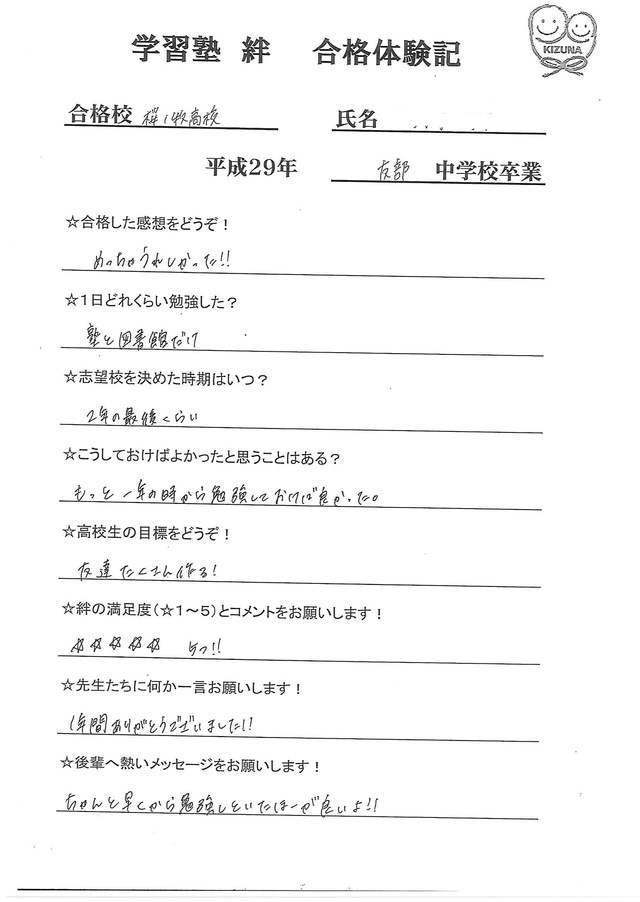 学習塾 絆 合格体験記
KIZUNA
合格校 桜ノ牧高校 氏名
平成29年 友部 中学校卒業
☆合格した感想をどうぞ！
めっちゃうれしかった!!
☆1日どれくらい勉強した？
塾と図書館だけ
☆志望校を決めた時期はいつ？
2年の最後くらい
☆こうしておけばよかったと思うことはある？
もっと一年の時から勉強しておけば良かった。
☆高校生の目標をどうぞ！
友達たくさん作る!
☆絆の満足度(☆1～5)とコメントをお願いします！
☆☆☆☆☆ 5っ!!
☆先生たちに何か一言お願いします！
1年間ありがとうございました!!
☆後輩へ熱いメッセージをお願いします！
ちゃんと早くから勉強しといたほーが良いよ!!